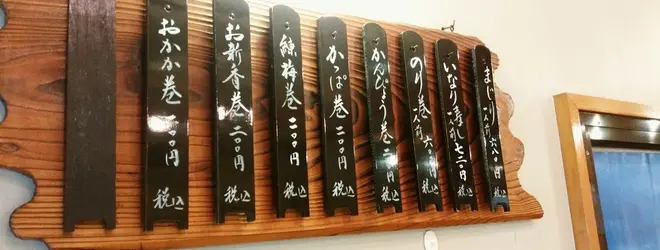 まじり 一人前 六八〇円 税込
いなり寿し 一人前 七二〇円 税込
のり巻 一人前 円 税込
かんぴょう巻 円 税込
かっぱ巻 二〇〇円 税込
練梅巻 二〇〇円 税込
お新香巻 二〇〇円 税込
おかか巻 二〇〇円 税込